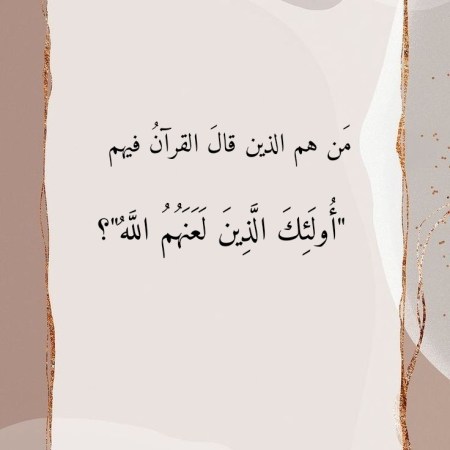 مَن هم الذين قالَ القرآنُ فيهم
"أُولَئِكَ الَّذِينَ لَعَنَهُمُ اللَّهُ"؟